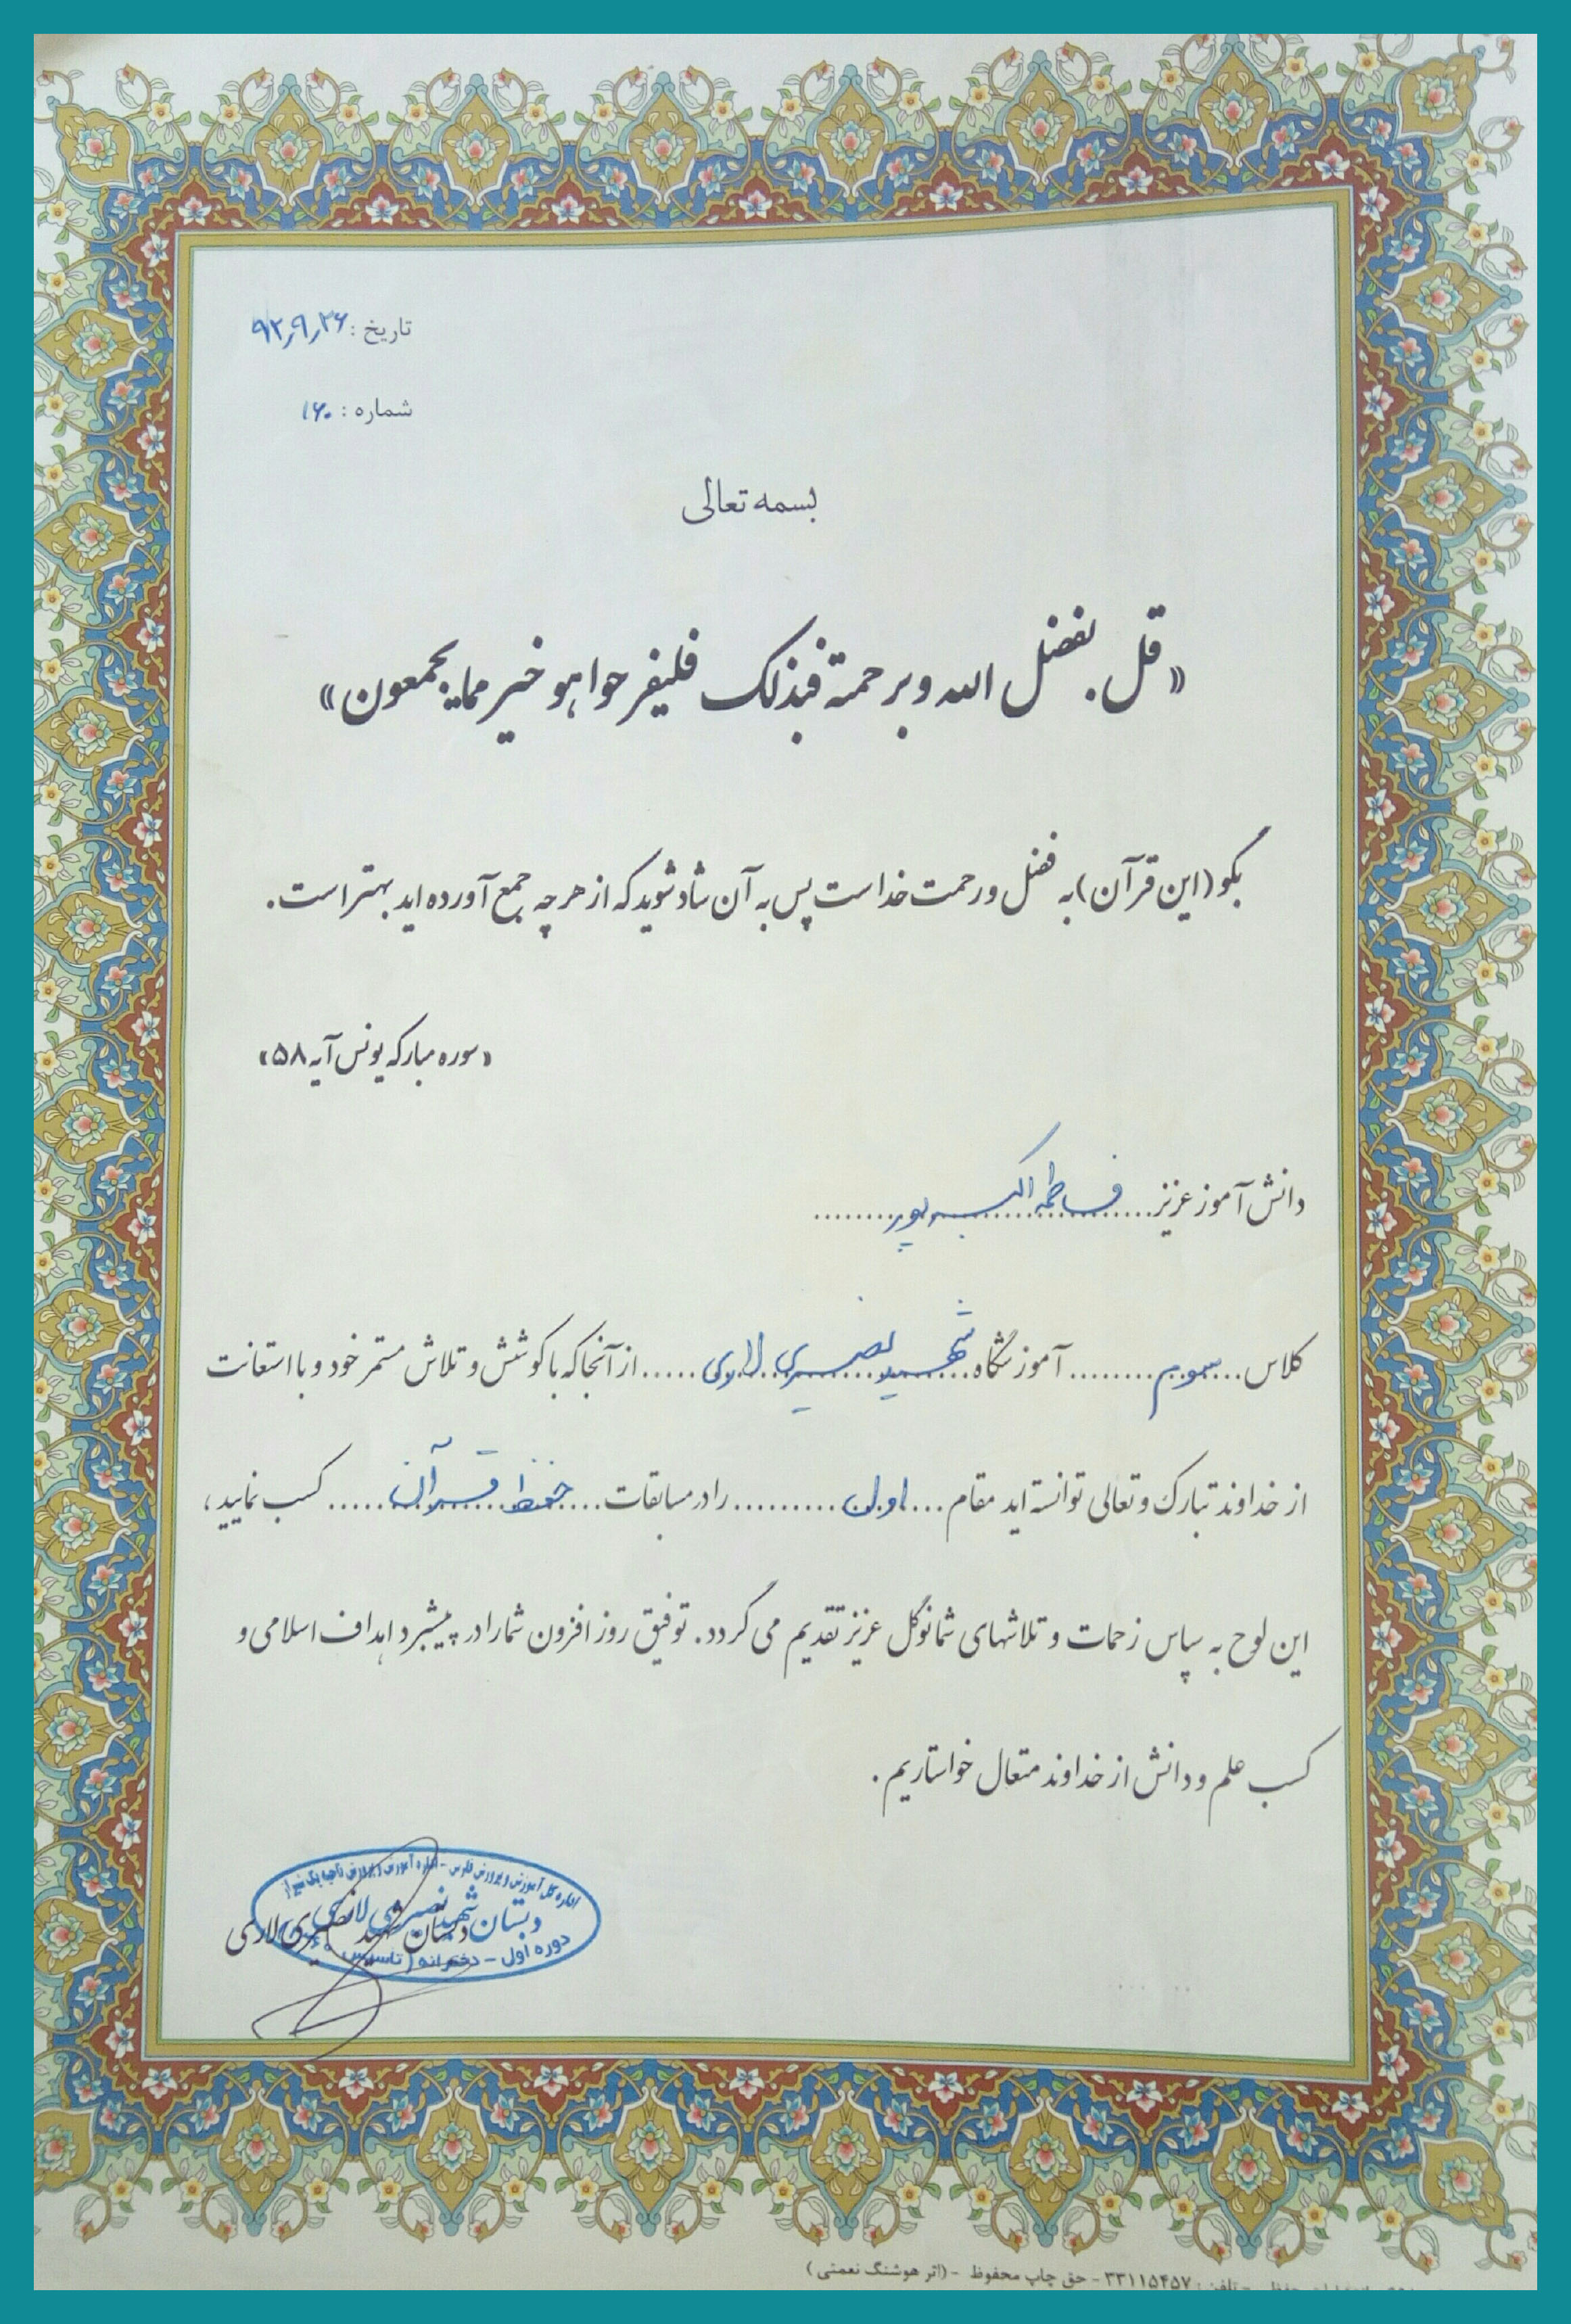 تاریخ : ۹۲٫۹٫۲۶
شماره : ۱۶۰
بسمه تعالی
«قل بفضل الله و برحمته فبذلک فلیفرحوا هو خیر مما یجمعون»
بگو (این قرآن) به فضل و رحمت خداست پس به آن شاد شوید که از هر چه جمع آورده اید بهتر است.
«سوره مبارکه یونس آیه ۵۸»
دانش آموز عزیز....فاطمه اکبرپور........
کلاس...سوم........آموزشگاه..شهید نصیری لاری.....از آنجا که با کوشش و تلاش مستمر خود و با استعانت
از خداوند تبارک و تعالی توانسته اید مقام....اول.........را در مسابقات....حفظ قرآن.....کسب نمایید،
این لوح به سپاس زحمات و تلاشهای شما نوگل عزیز تقدیم می گردد. توفیق روز افزون شما را در پیشبرد اهداف اسلامی و
کسب علم و دانش از خداوند متعال خواستاریم.
اداره کل آموزش و پرورش فارس - اداره آموزش و پرورش ناحیه یک شیراز
دبستان شهید نصیری لاری
دبستان شهید نصیری لاری
دوره اول - دخترانه (تاسیس
تلفن : ۳۳۱۱۵۴۵۷ - حق چاپ محفوظ - (اثر هوشنگ نعمتی)